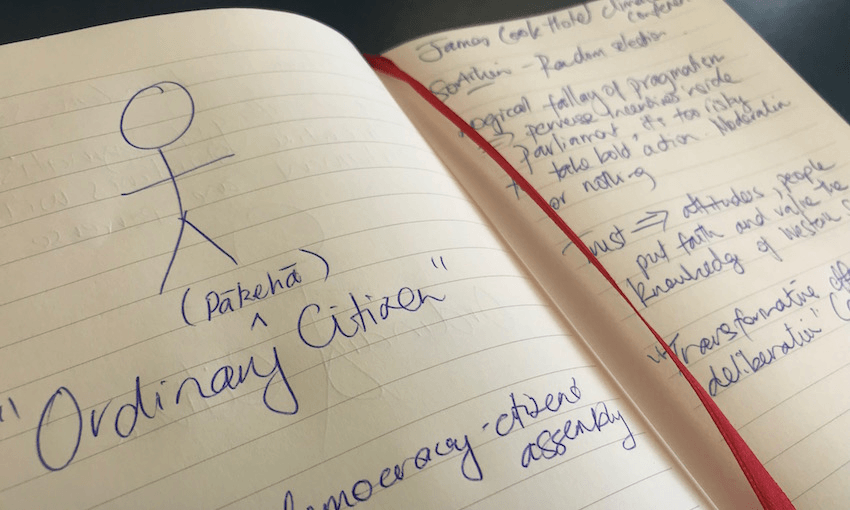 (Pākehā)
^
"Ordinary Citizen"
democracy - citizens'
assembly
James Cook Hotel Climate
Conference
Sortition - Random selection
Logical fallacy of pragmatism
⇒ perverse incentives inside
parliament, it's too risky
to take bold action. Moderation
or nothing
Trust ⇒ attitudes, people
put faith and value the
knowledge of Western
"Transformative
deliberation"